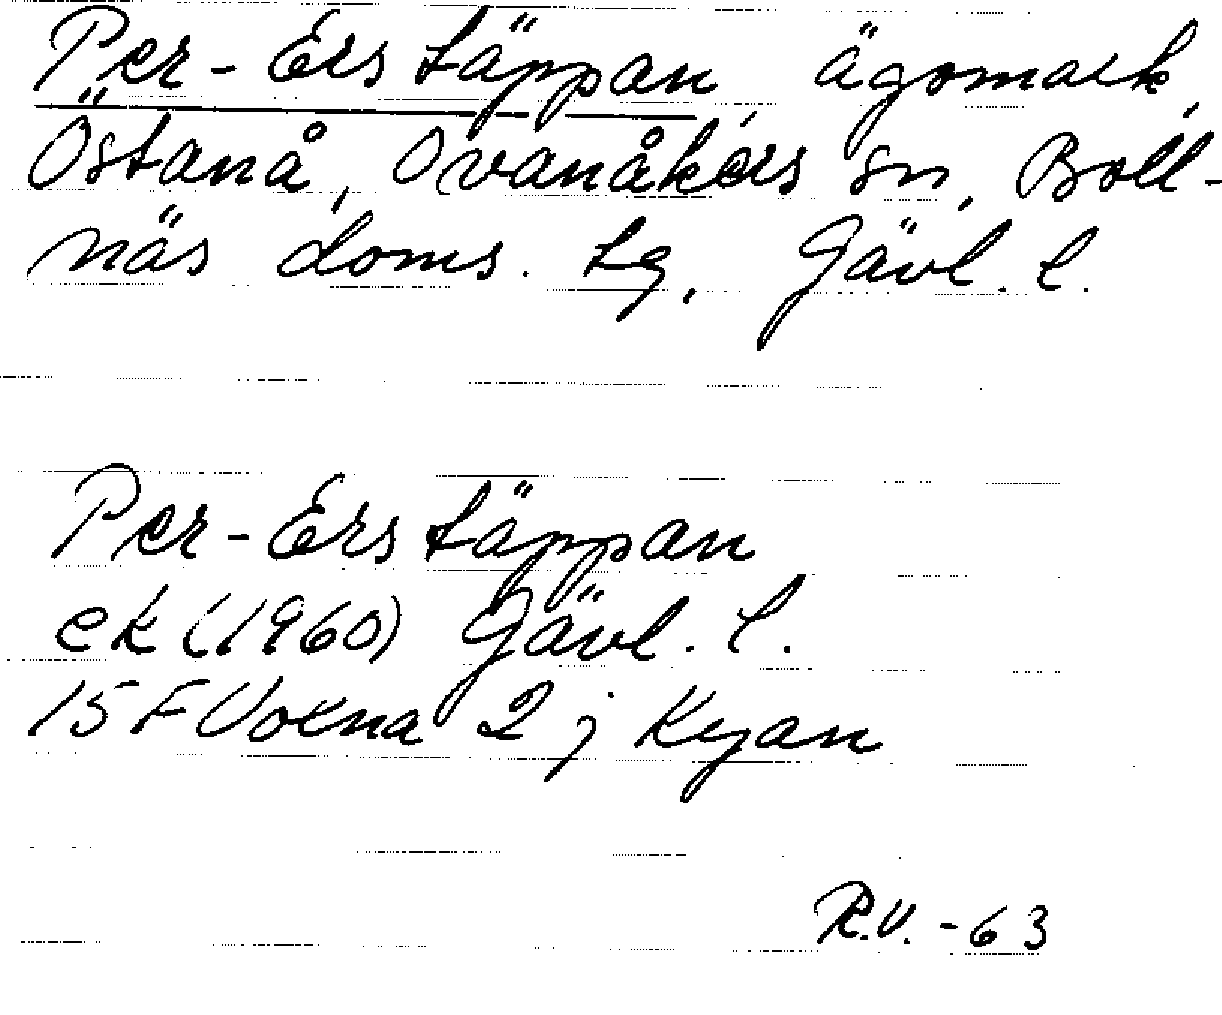 Per-Erstäppan, ägomark,
Östanå, Ovanåkers sn, Boll-
näs doms. tg, Gävl. l.
Per-Erstäppan
ek (1960) Gävl. l.
15 F Voxna 2 j Kyan
R.V. -63